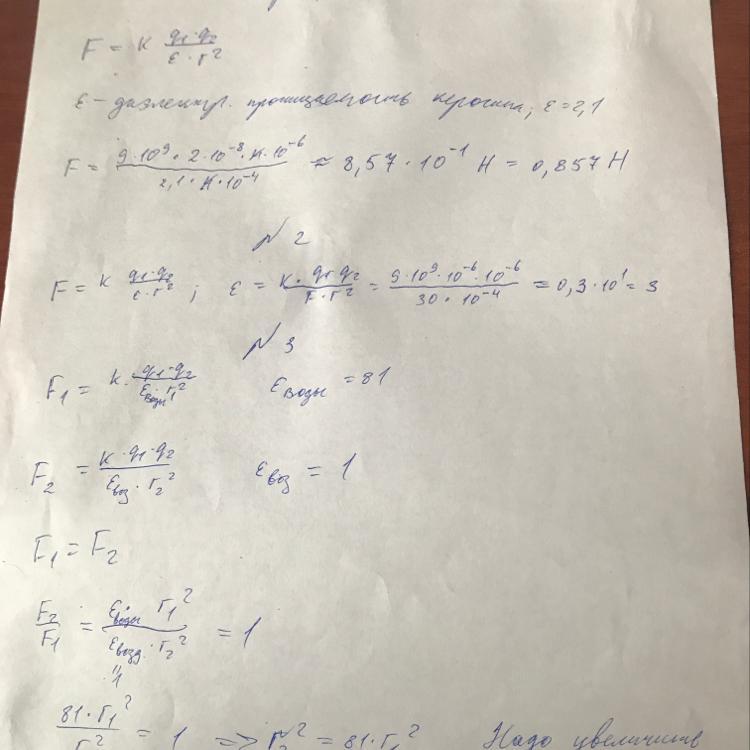 F = k q₁·q₂ / ε·r²
ε – диэлектр. проницаемость керосина; ε = 2,1
F = 9·10⁹·2·10⁻⁸·4·10⁻⁶ / 2,1·4·10⁻⁴ ≈ 8,57·10⁻¹ Н = 0,857 Н
N 2
F = k q₁·q₂ / ε·r² ; ε = k·q₁·q₂ / F·r² = 9·10⁹·10⁻⁶·10⁻⁶ / 30·10⁻⁴ = 0,3·10¹ = 3
N 3
F₁ = k·q₁·q₂ / εводы·r₁² εводы = 81
F₂ = k·q₁·q₂ / εвоз·r₂² εвоз = 1
F₁ = F₂
F₂/F₁ = εводы r₁² / εвозд·r₂² = 1
"1
81·r₁² / r₂² = 1 => r₂² = 81·r₁² Надо увеличить